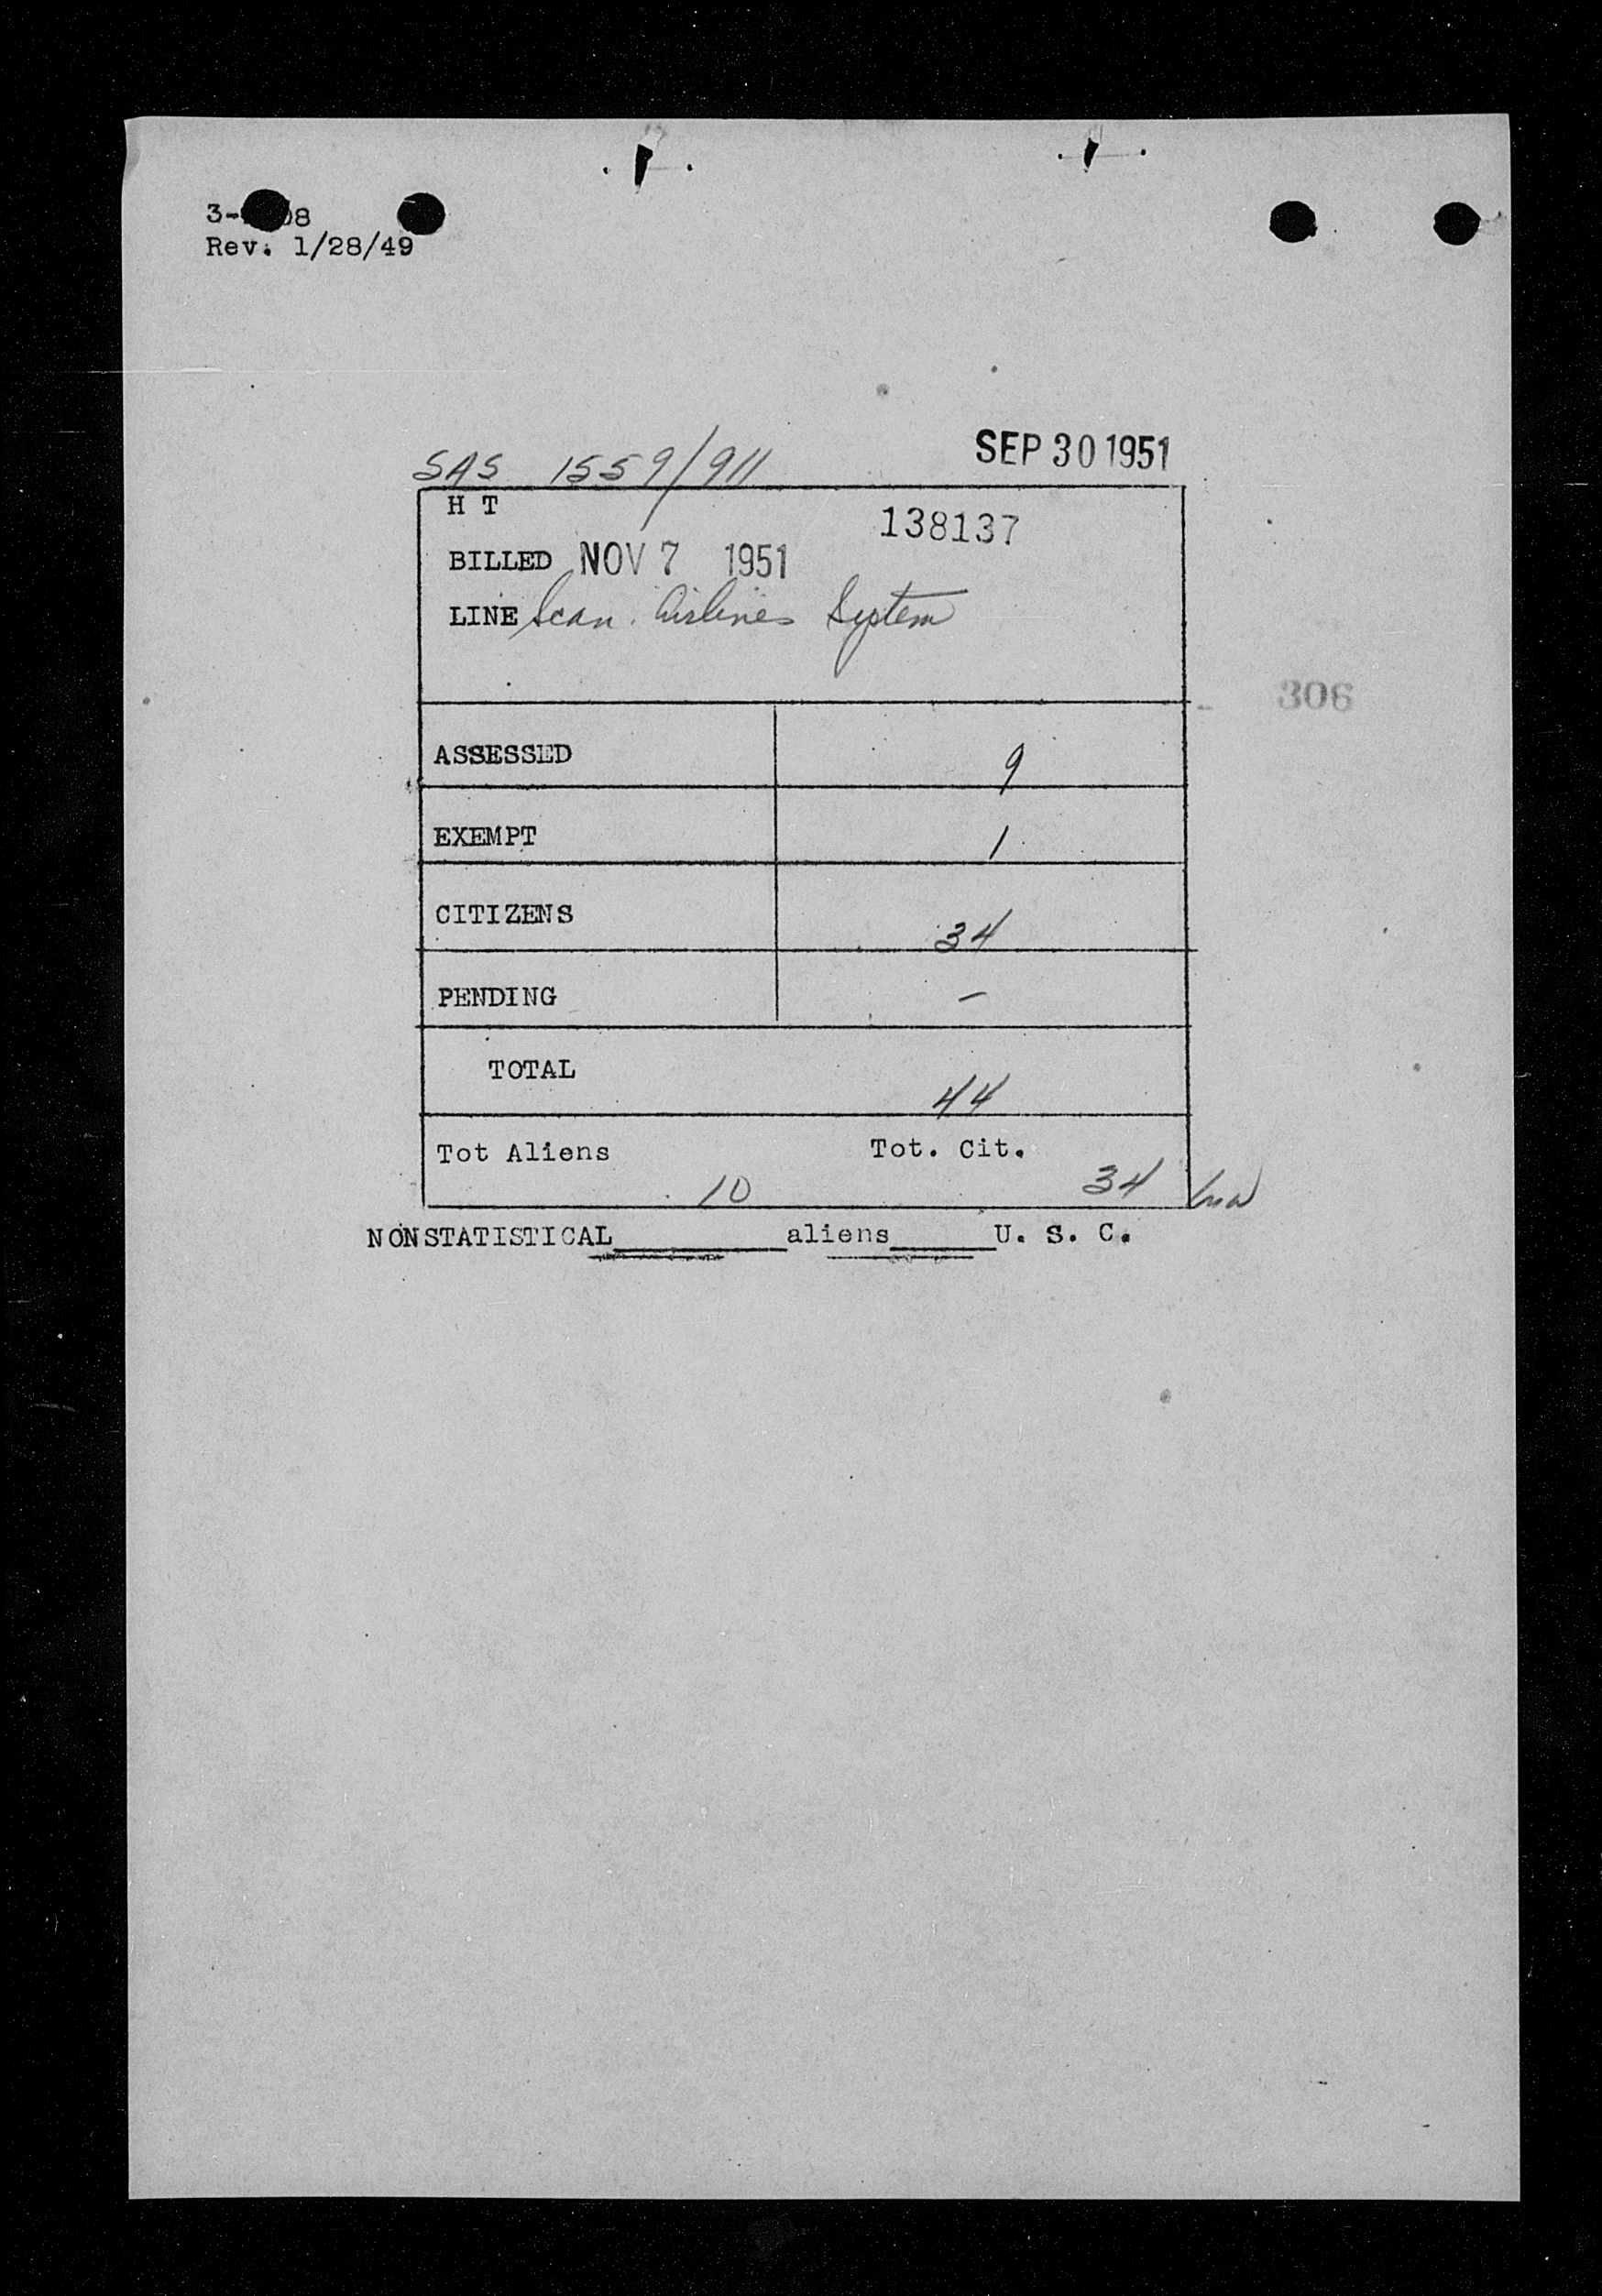 Rev. 1/28/49
SAS 1559/911 SEP 30 1951
H T
138137
BILLED NOV 7 1951
LINE Scan. Airlines System
306
ASSESSED 9
EXEMPT 1
CITIZENS 34
PENDING –
TOTAL 44
Tot Aliens 10 Tot. Cit. 34
NONSTATISTICAL________aliens_____U. S. C.